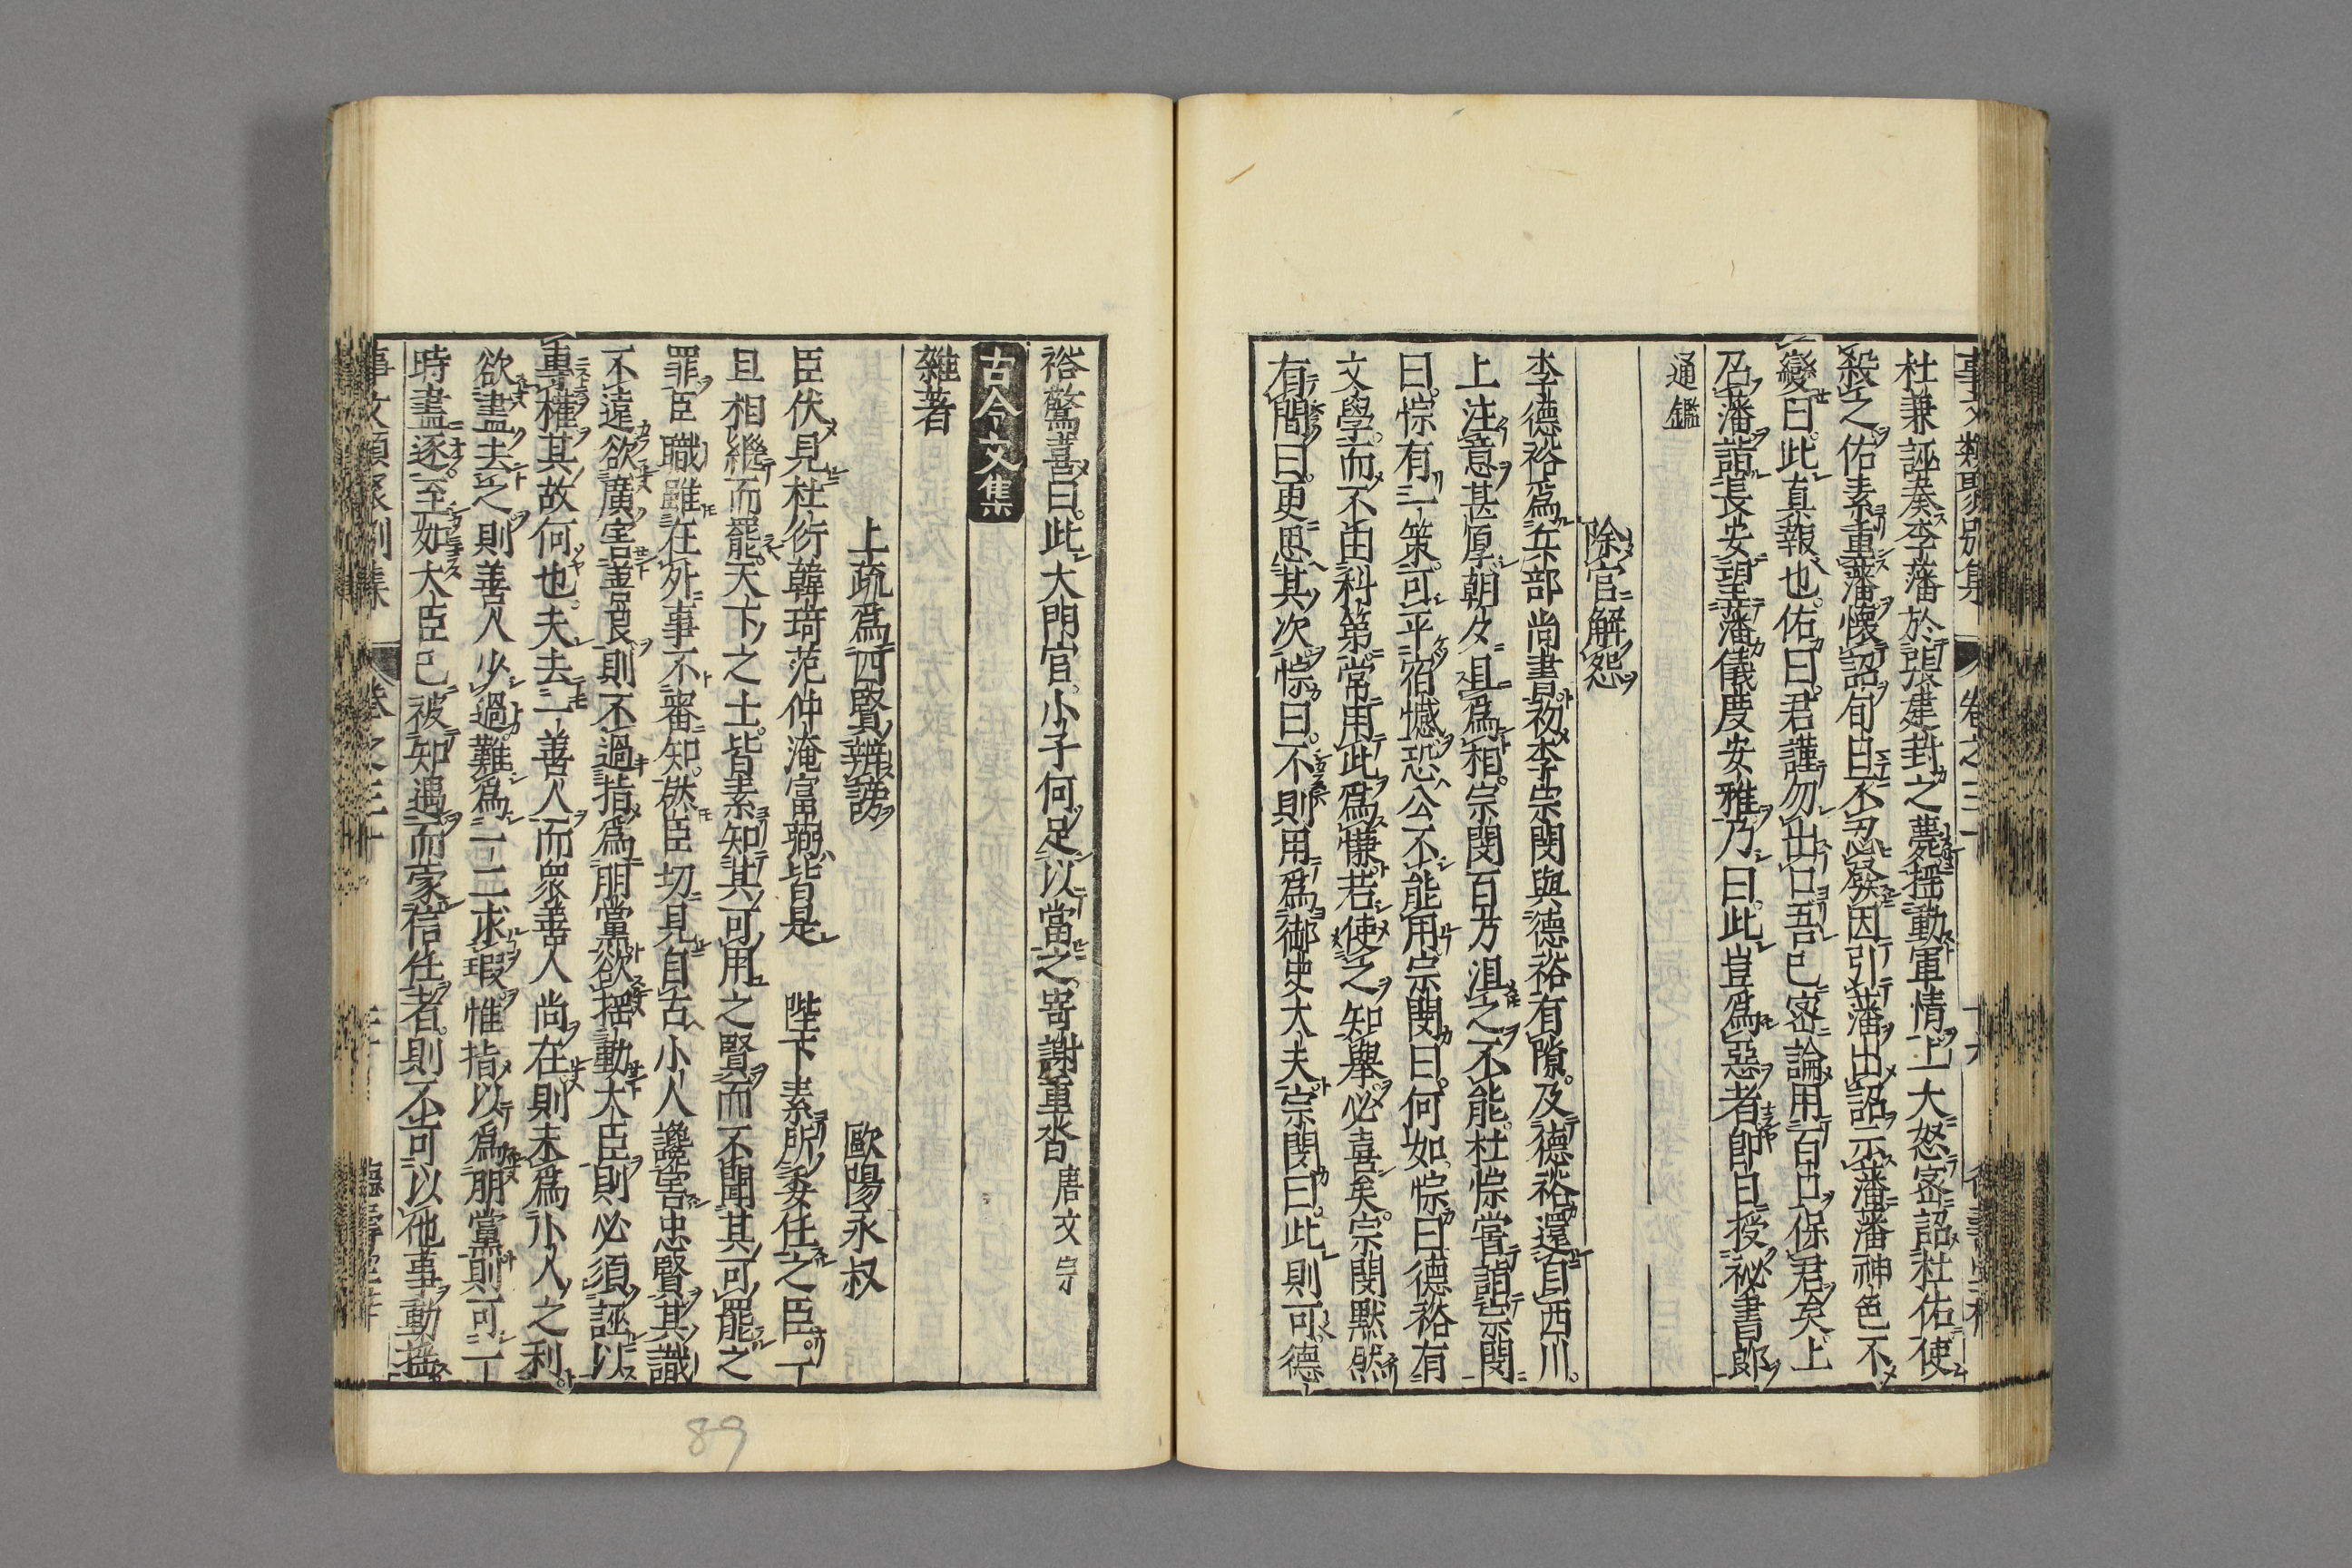 事文類聚別集 卷之三十
杜兼誣奏李藩於張建封之薨搖動軍情上大怒密詔杜佑使
殺之佑素重藩懷詔旬日不忍發因引藩出詔示藩藩神色不
變曰此真報也佑曰君謹勿出口吾已密論用百口保君矣上
召藩詣長安望藩儀度安雅乃曰此豈爲惡者即日授祕書郎
通鑑
除官解怨
李德裕爲兵部尚書初李宗閔與德裕有隙及德裕還自西川
上注意甚厚朝夕且爲相宗閔百方沮之不能杜悰嘗詣宗閔
曰悰有一策可平宿憾恐公不能用宗閔曰何如悰曰德裕有
文學而不由科第常用此爲慊若使之知舉必喜矣宗閔默然
有間曰更思其次悰曰不則用爲御史大夫宗閔曰此則可德
裕驚喜曰此大門官小子何足以當之寄謝重沓 唐文宗
古今文集
雜著
上疏爲四賢辨謗 歐陽永叔
臣伏見杜衍韓琦范仲淹富弼皆是 陛下素所委任之臣一
旦相繼而罷天下之士皆素知其可用之賢而不聞其可罷之
罪臣職雖在外事不審知然臣切見自古小人讒害忠賢其識
不遠欲廣害善良則不過指爲朋黨欲搖動大臣則必須誣以
專權其故何也夫去一善人而衆善人尚在則未爲小人之利
欲盡去之則善人少過難爲一二求瑕惟指以爲朋黨則可一
時盡逐至如大臣已被知遇而蒙信任者則不可以他事動搖
事文類聚別集 卷之三十